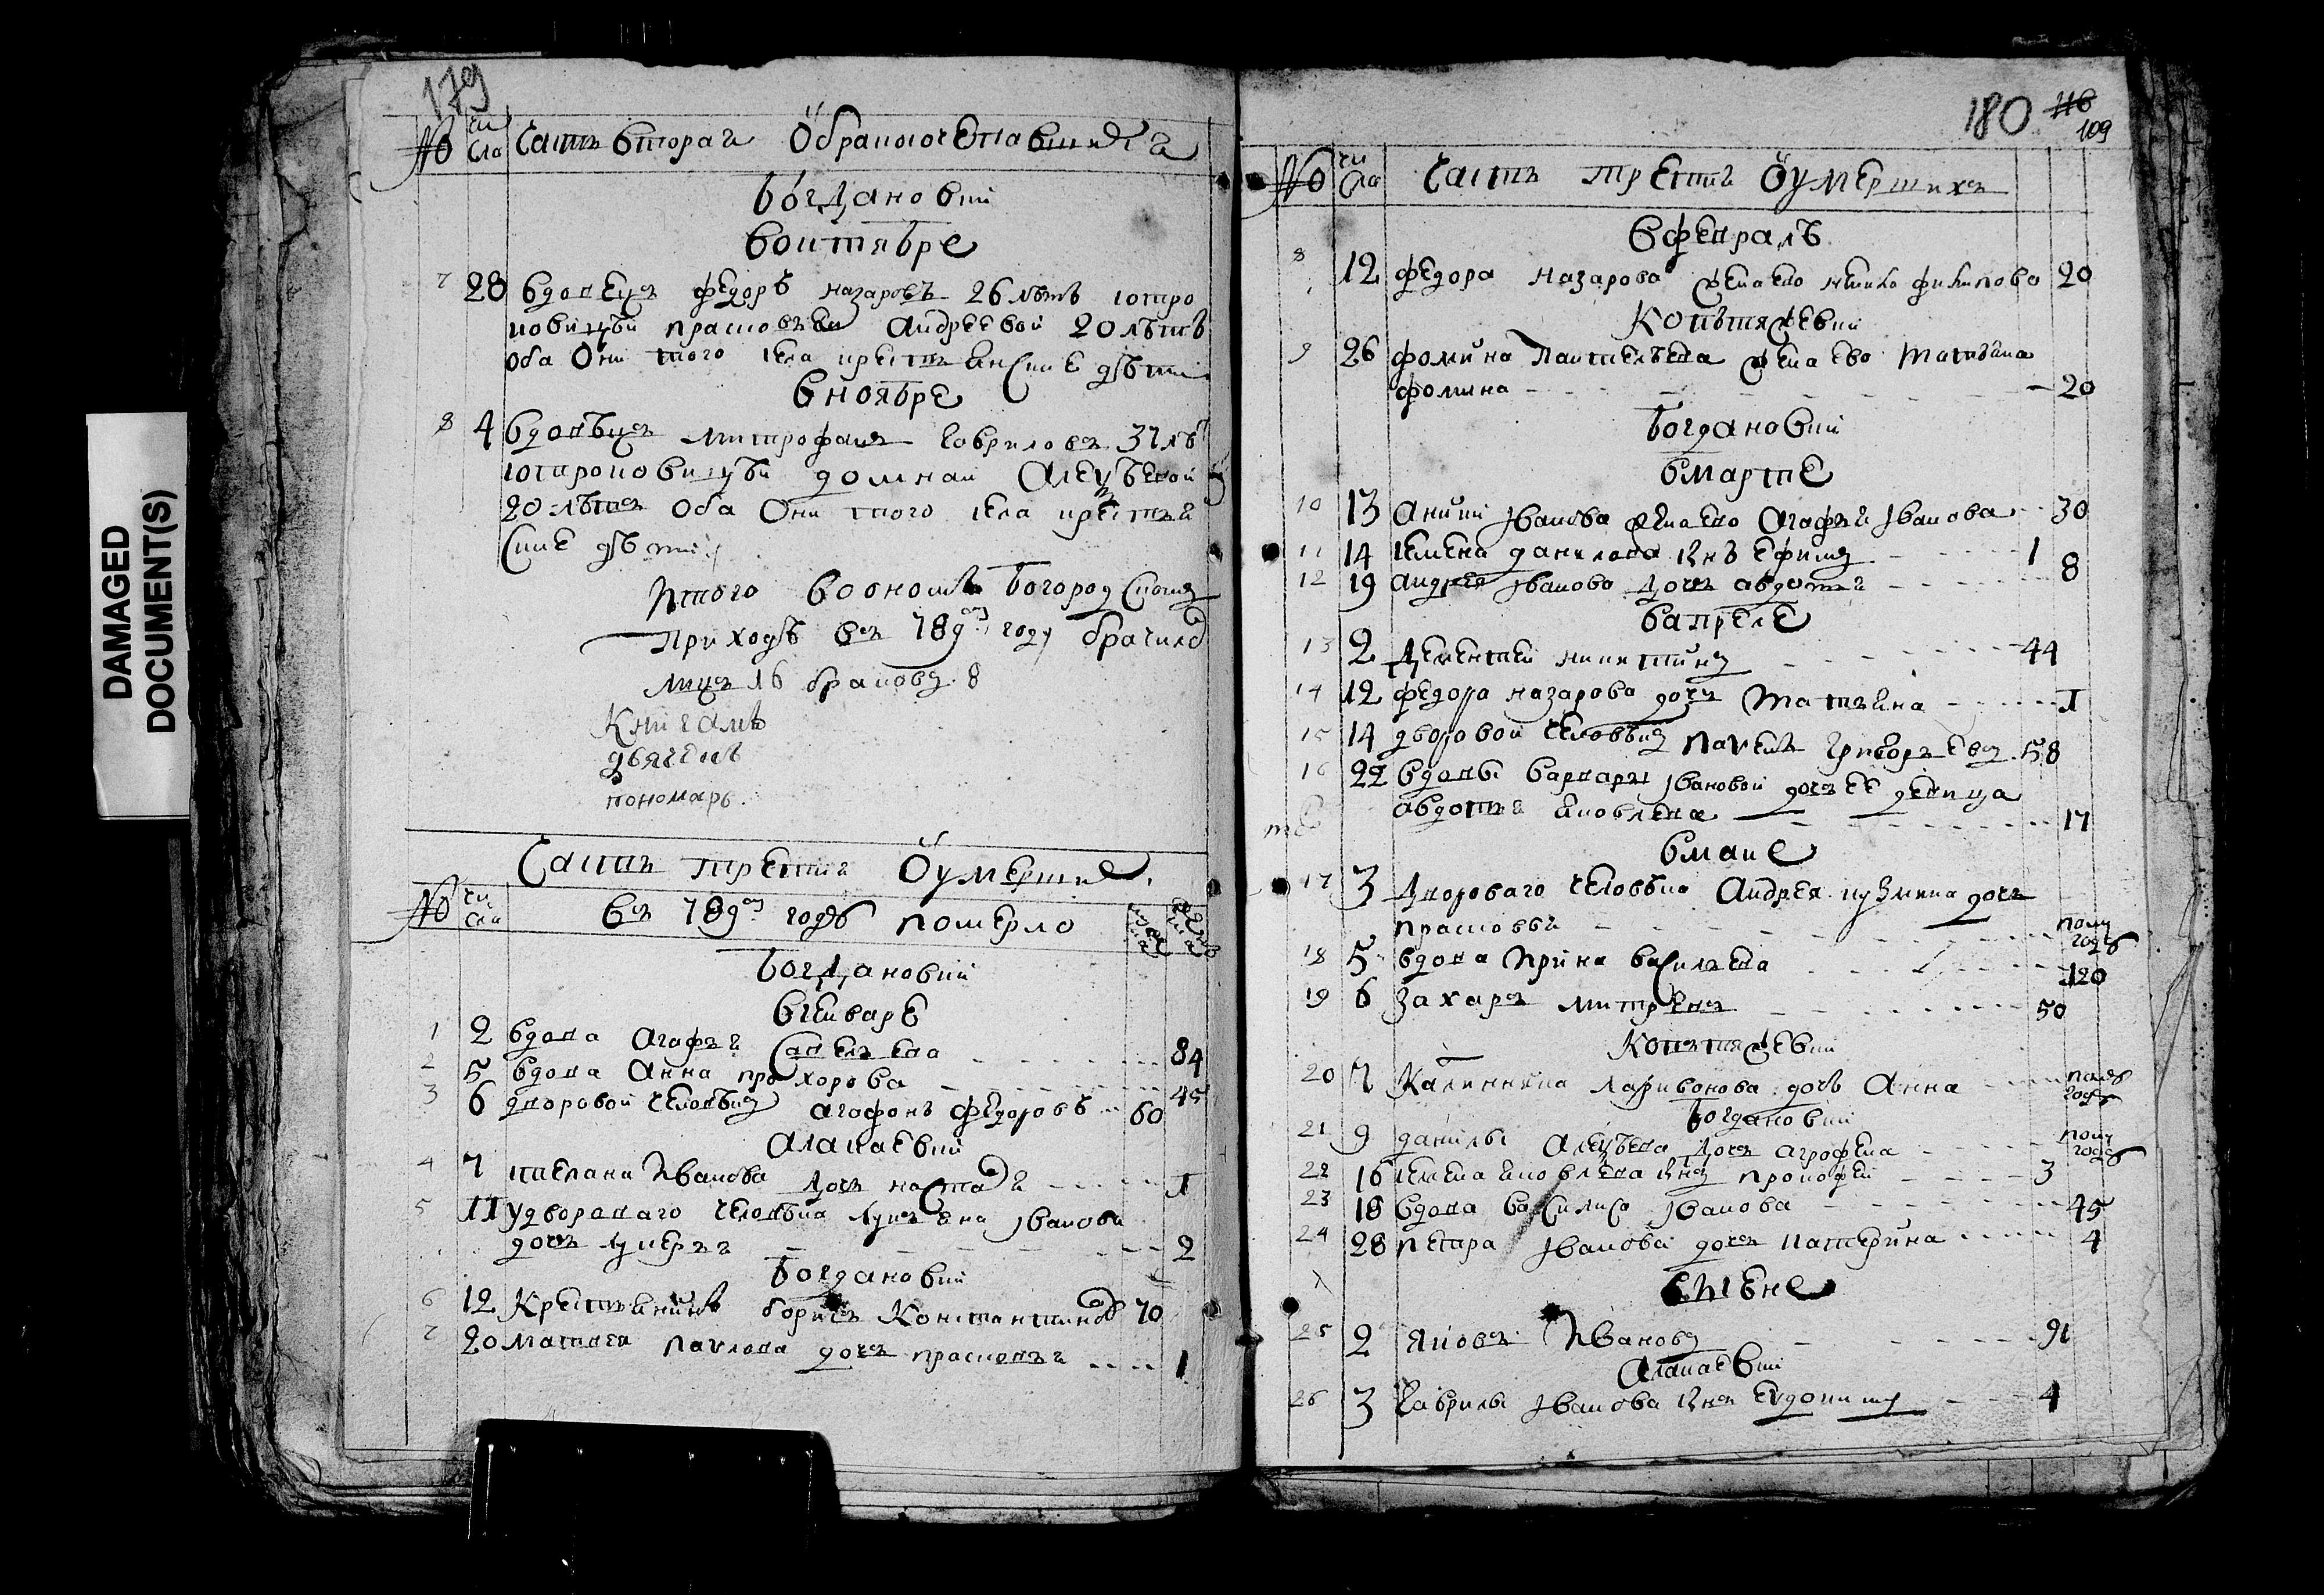 DAMAGED
DOCUMENT(S)
179
№ чи сла Часть вторая О бракосочетавшихся
Богдановки
В октябре
7 28 вдовец федоръ назаровъ 26 летъ
прасковьеи андреевои 20 летъ
оба они того села крестьянские дети
в ноябре
8 4 вдовецъ митрофанъ гавриловъ 37 лет
домнаи
20 летъ оба они того села крестья
ские дети
Итого во оном богородскомъ
приходѣ въ 789м году брачилос
лицъ 16 браковъ 8
К книгамъ
дьяченъ
пономарь
Часть третия О умерших
№ чи сла Въ 789м годѣ померло
Богдановки
В генваре
1 2 вдова агафья савельева 84
2 5 вдова анна прохорова 45
3 6 дворовой человекъ агафонъ федоровъ 60
4 7 степана иванова дочь настася 1
5 11 у двороваго человека лукьяна иванова
дочь лукерья 2
Богдановки
6 12 Крестьянинъ борисъ Константинов 70
7 20 матвея павлова дочь прасковья 1
180 116
109
№ чи сла Часть третия О умершихъ
В феврале
8 12 федора назарова жена ево филипова 20
9 26 фомина пантелеева жена ево татьяна
фомина 20
Богдановки
в марте
10 13 иванова жена ево агафья иванова 30
11 14 семена данилова снъ ефимъ 1
12 19 андрея иванова дочь авдотья 8
в апреле
13 2 дементей никитинъ 44
14 12 федора назарова дочь татьяна 1
15 14 дворовой человекъ павелъ григорьевъ 58
16 22 вдовы варвары ивановой дочь ее девица
авдотья яковлева 17
в мае
17 3 двороваго человека андрея кузмина дочь
прасковья полу годѣ
18 5 вдова ирина васильева 120
19 6 захаръ 50
20 7 Калинника ларивонова дочь анна полу годѣ
Богдановки
21 9 данилы алексеева дочь агрофена полу годѣ
22 16 семена яковлева снъ прокофей 3
23 18 вдова василиса иванова 45
24 28 петра иванова дочь катерина 4
в июне
25 2 яковъ ивановъ 91
26 3 гаврилы иванова снъ евдокимъ 4